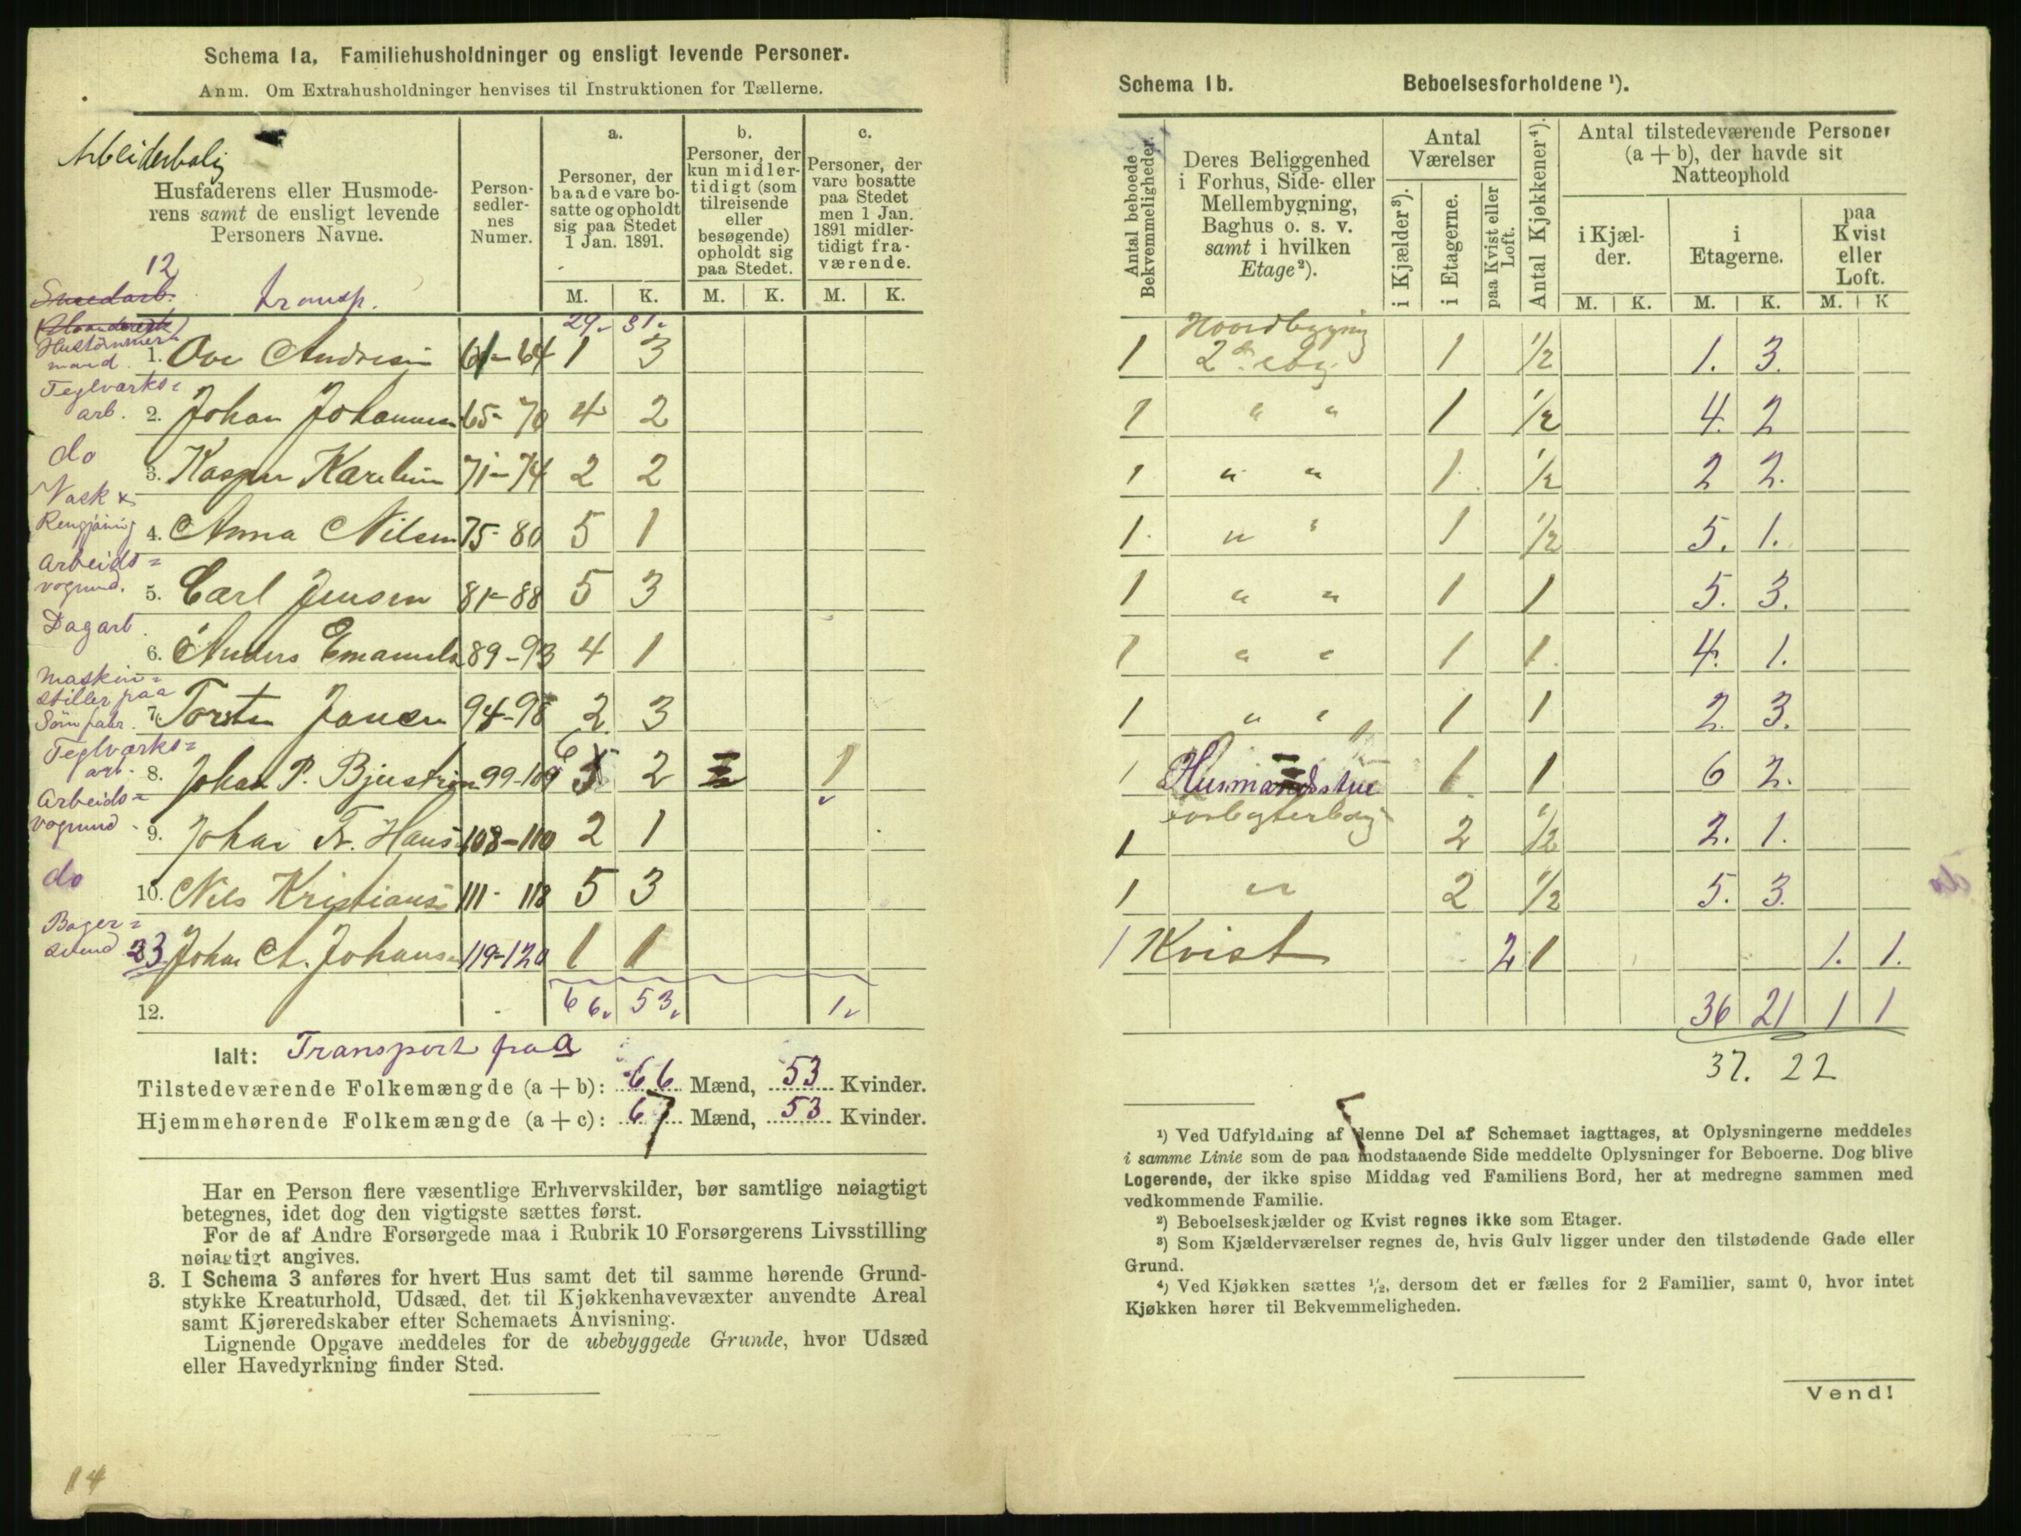 Schema 1a, Familiehusholdninger og ensligt levende Personer.
Anm. Om Extrahusholdninger henvises til Instruktionen for Tællerne.
Arbeiderbolig
Husfaderens eller Husmode-
rens samt de ensligt levende
Personers Navne.
Person-
sedler-
nes
Numer.
a.
Personer, der
baade vare bo-
satte og opholdt
sig paa Stedet
1 Jan. 1891.
b.
Personer, der
kun midler-
tidigt (som
tilreisende
eller
besøgende)
opholdt sig
paa Stedet.
c.
Personer, der
vare bosatte
paa Stedet
men 1 Jan.
1891 midler-
tidigt fra-
værende.
M. K. M. K. M. K.
12
Smedarb. transp. 29. 31.
Hustømmer-
mand. 1. Ove Andresen 61-64 1 3
Teglværks=
arb. 2. Johan Johannesen 65-70 4 2
do 3. Kasper Karelius 71-74 2 2
Vask &
Rengjøring 4. Anna Nilsen 75-80 5 1
Arbeids=
vognmd. 5. Carl Jensen 81-88 5 3
Dagarb. 6. Anders Emanuels 89-93 4 1
Maskin=
stiller paa
Sømfabr. 7. Torsten Jansen 94-98 2 3
Teglværks=
arb. 8. Johan P. Bjustrøm 99-10 6 2 1
Arbeids=
vognmd. 9. Johan Fr. Hans 108-110 2 1
do 10. Nils Kristians 111-118 5 3
Bager=
svend 23 Johan A. Johans 119-120 1 1
12. 66. 53. 1.
Ialt: Transport paa
Tilstedeværende Folkemængde (a + b): 66 Mænd, 53 Kvinder.
Hjemmehørende Folkemængde (a + c): 67 Mænd, 53 Kvinder.
Har en Person flere væsentlige Erhvervskilder, bør samtlige nøiagtigt
betegnes, idet dog den vigtigste sættes først.
For de af Andre Forsørgede maa i Rubrik 10 Forsørgerens Livsstilling
nøiagtigt angives.
3. I Schema 3 anføres for hvert Hus samt det til samme hørende Grund-
stykke Kreaturhold, Udsæd, det til Kjøkkenhavevæxter anvendte Areal
samt Kjøreredskaber efter Schemaets Anvisning.
Lignende Opgave meddeles for de ubebyggede Grunde, hvor Udsæd
eller Havedyrkning finder Sted.
14
Schema 1b. Beboelsesforholdene ¹).
Antal beboede
Bekvemmeligheder.
Deres Beliggenhed
i Forhus, Side- eller
Mellembygning,
Baghus o. s. v.
samt i hvilken
Etage²).
Antal
Værelser
i Kjælder³).
i Etagerne.
paa Kvist eller
Loft.
Antal Kjøkkener⁴).
Antal tilstedeværende Personer
(a + b), der havde sit
Natteophold
i Kjæl-
der.
i
Etagerne.
paa
Kvist
eller
Loft.
M. K. M. K. M. K
Hovedbygning
1 2den etg. 1 1/2 1. 3.
1 " " 1 1/2 4. 2
1 " " 1 1/2 2 2.
1 " " 1 1/2 5. 1.
1 " " 1 1 5. 3.
1 " " 1 1 4. 1.
1 " " 1 1 2. 3.
1 Husmandsstue 1 1 6 2.
1 2 1/2 2. 1.
1 " 2 1/2 5. 3.
1 Kvist 2 1 1. 1.
36 21 1 1
37. 22
¹) Ved Udfyldning af denne Del af Schemaet iagttages, at Oplysningerne meddeles
i samme Linie som de paa modstaaende Side meddelte Oplysninger for Beboerne. Dog blive
Logerende, der ikke spise Middag ved Familiens Bord, her at medregne sammen med
vedkommende Familie.
²) Beboelseskjælder og Kvist regnes ikke som Etager.
³) Som Kjælderværelser regnes de, hvis Gulv ligger under den tilstødende Gade eller
Grund.
⁴) Ved Kjøkken sættes ¹/₂, dersom det er fælles for 2 Familier, samt 0, hvor intet
Kjøkken hører til Bekvemmeligheden.
Vend!